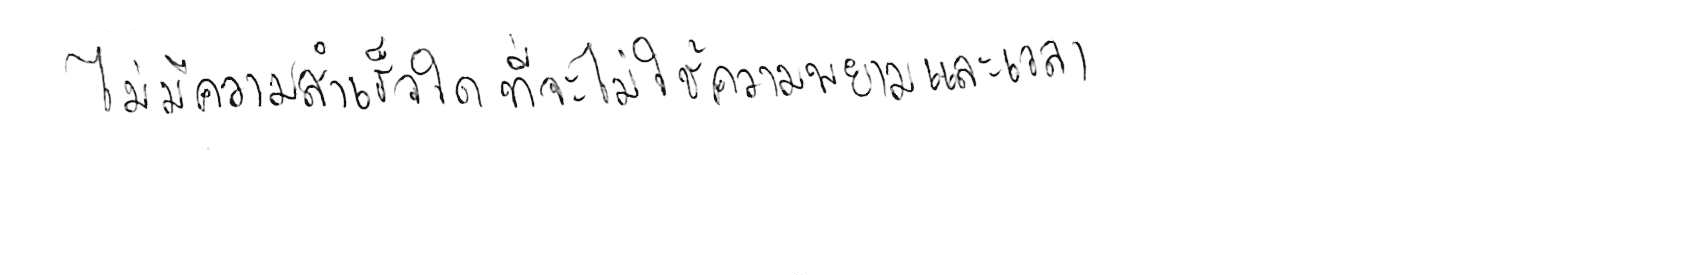 ไม่มีความสำเร็จใด ที่จะไม่ใช้ความพยามและเวลา